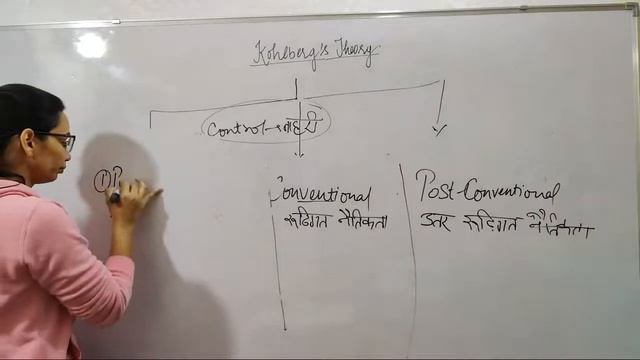 Kohlberg's Theory
Control→बाहरी
① P
Conventional
रूढिगत नैतिकता
Post-Conventional
उत्तर रूढ़िगत नैतिकता